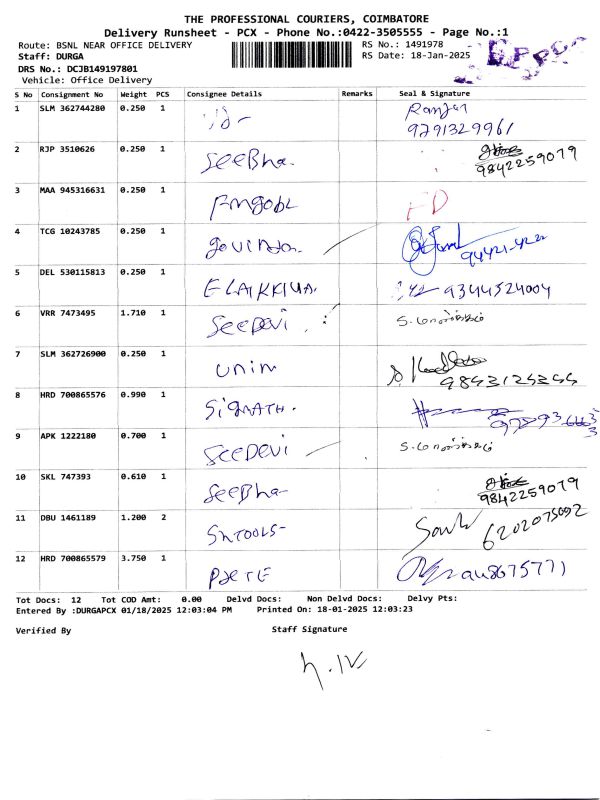 THE PROFESSIONAL COURIERS, COIMBATORE
Delivery Runsheet - PCX - Phone No.:0422-3505555 - Page No.:1
Route: BSNL NEAR OFFICE DELIVERY
RS No.: 1491978
Staff: DURGA
RS Date: 18-Jan-2025
DRS No.: DCJB149197801
Vehicle: Office Delivery
S No Consignment No Weight PCS Consignee Details Remarks Seal & Signature
1 SLM 362744280 0.250 1 Ranjar
9791329961
2 RJP 3510626 0.250 1 SeeBha.
9842259079
3 MAA 945316631 0.250 1 FD
4 TCG 10243785 0.250 1 govinda.
5 DEL 530115813 0.250 1 ELAIKKIYA. 9344524004
6 VRR 7473495 1.710 1 SEEDEVI
7 SLM 362726900 0.250 1 unin
8 HRD 700865576 0.990 1
9 APK 1222180 0.700 1 SEEDEVI
10 SKL 747393 0.610 1 SeeBha
9842259079
11 DBU 1461189 1.200 2 SNTOOLS-
12 HRD 700865579 3.750 1
Tot Docs: 12 Tot COD Amt: 0.00 Delvd Docs: Non Delvd Docs: Delvy Pts:
Entered By :DURGAPCX 01/18/2025 12:03:04 PM Printed On: 18-01-2025 12:03:23
Verified By Staff Signature